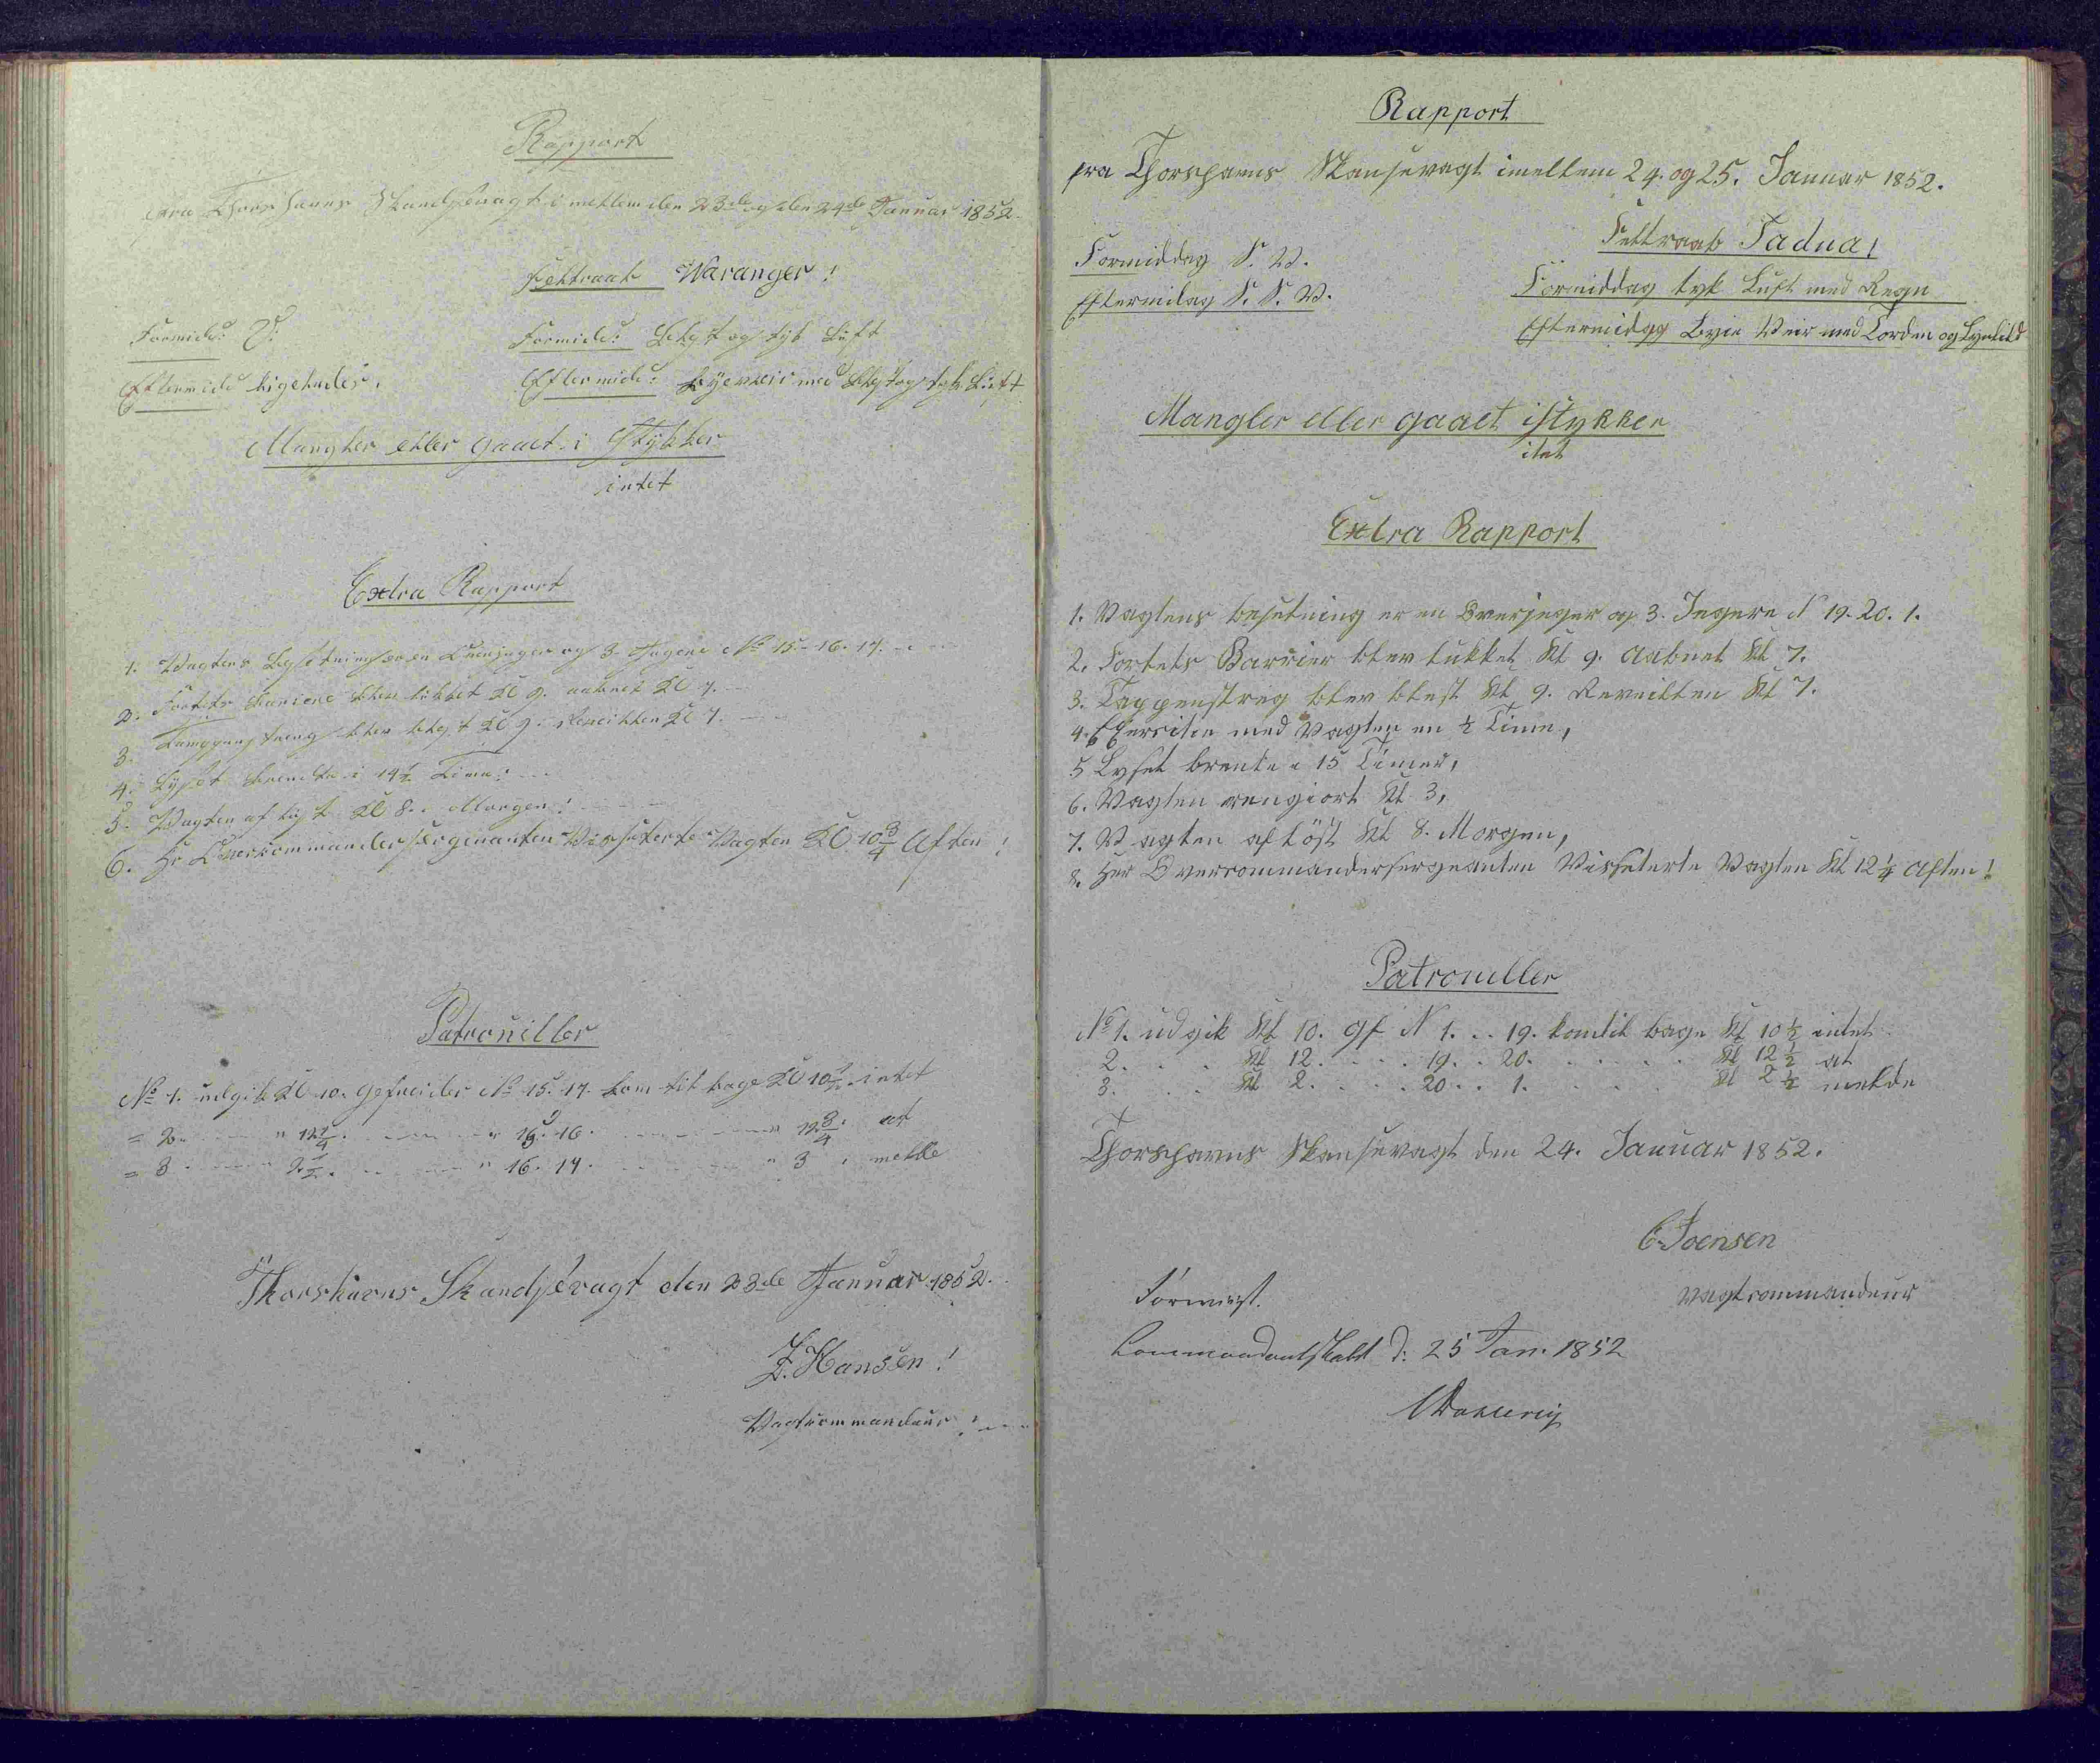 Rapport
fra Thorshavns Skandsevagt imellem den 23de og den 24de Januar 1852.
Feltraab Waranger!
Formidd: S:
Formidd: Blest og tyk Luft
Eftermidd ligeledes.
Eftermidd: Byeveir med Blest og tyk Luft
Mangler eller gaaet i Stykker
intet
Extra Rapport
1. Vagtens Besetning er en Overjæger og 3 Jægere No 15. 16. 17.
2. Fortets Bariere blev lukket Kl 9. aabnet Kl 7.
3. Tampenstreng blev blest Kl 9. Reveillen Kl 7.
4. Lyset brendte i 14½ Time:
5. Vagten afløst Kl 8. Morgen!
6. Hr Overkommandersergeanten Visiterte Vagten Kl 10¾ Aften!
Patrouiller
No 1. udgik Kl 10. Gefreider No 15. 17. kom tilbage Kl 10½. intet
= 2. " 12¼. " 15. 16. " 12¾. at
= 3. " 2½. " 16. 17. " 3. melde
Thorshavns Skandsevagt den 23de Januar 1852.
Z. Hansen!
Vagtcommandeur
Rapport
fra Thorshavns Skansevagt imellem 24. og 25. Januar 1852.
Feltraab Padua!
Formiddag S. W.
Formiddag tyk Luft med Regn
Eftermidag S. S. W.
Eftermidag Byie Veir med Torden og Lynild
Mangler eller gaaet istykker
itet
Extra Rapport
1. Vagtens besetning er en Overjeger og 3. Jegere N 19. 20. 1.
2. Fortets Barrier blev lukket Kl 9. Aabnet Kl 7.
3. Tappenstreg blev blest Kl 9. Reveillen Kl 7.
4. Exersitie med Vagten en ½ Time,
5 Lyset brente i 15 Timer,
6. Vagten rengiort Kl 3,
7. Vagten afløst Kl 8. Morgen,
8. Her Overcommandersergeanten Visseterte Vagten Kl 12¼ Aften!
Patrouller
No 1. udgik Kl 10. Gf N 1. .. 19. kom tilbage Kl 10½ intet
2. . . Kl 12. . . . 19. . 20. . . . . . Kl 12½ at
3. . . Kl 2. . . . 20. . 1. . . . . . Kl 2½ melde
Thorshavns Skansevagt den 24. Januar 1852.
C. Joensen
Vagtcommandeur
Forevist.
Commandantskabet d: 25 Jan. 1852